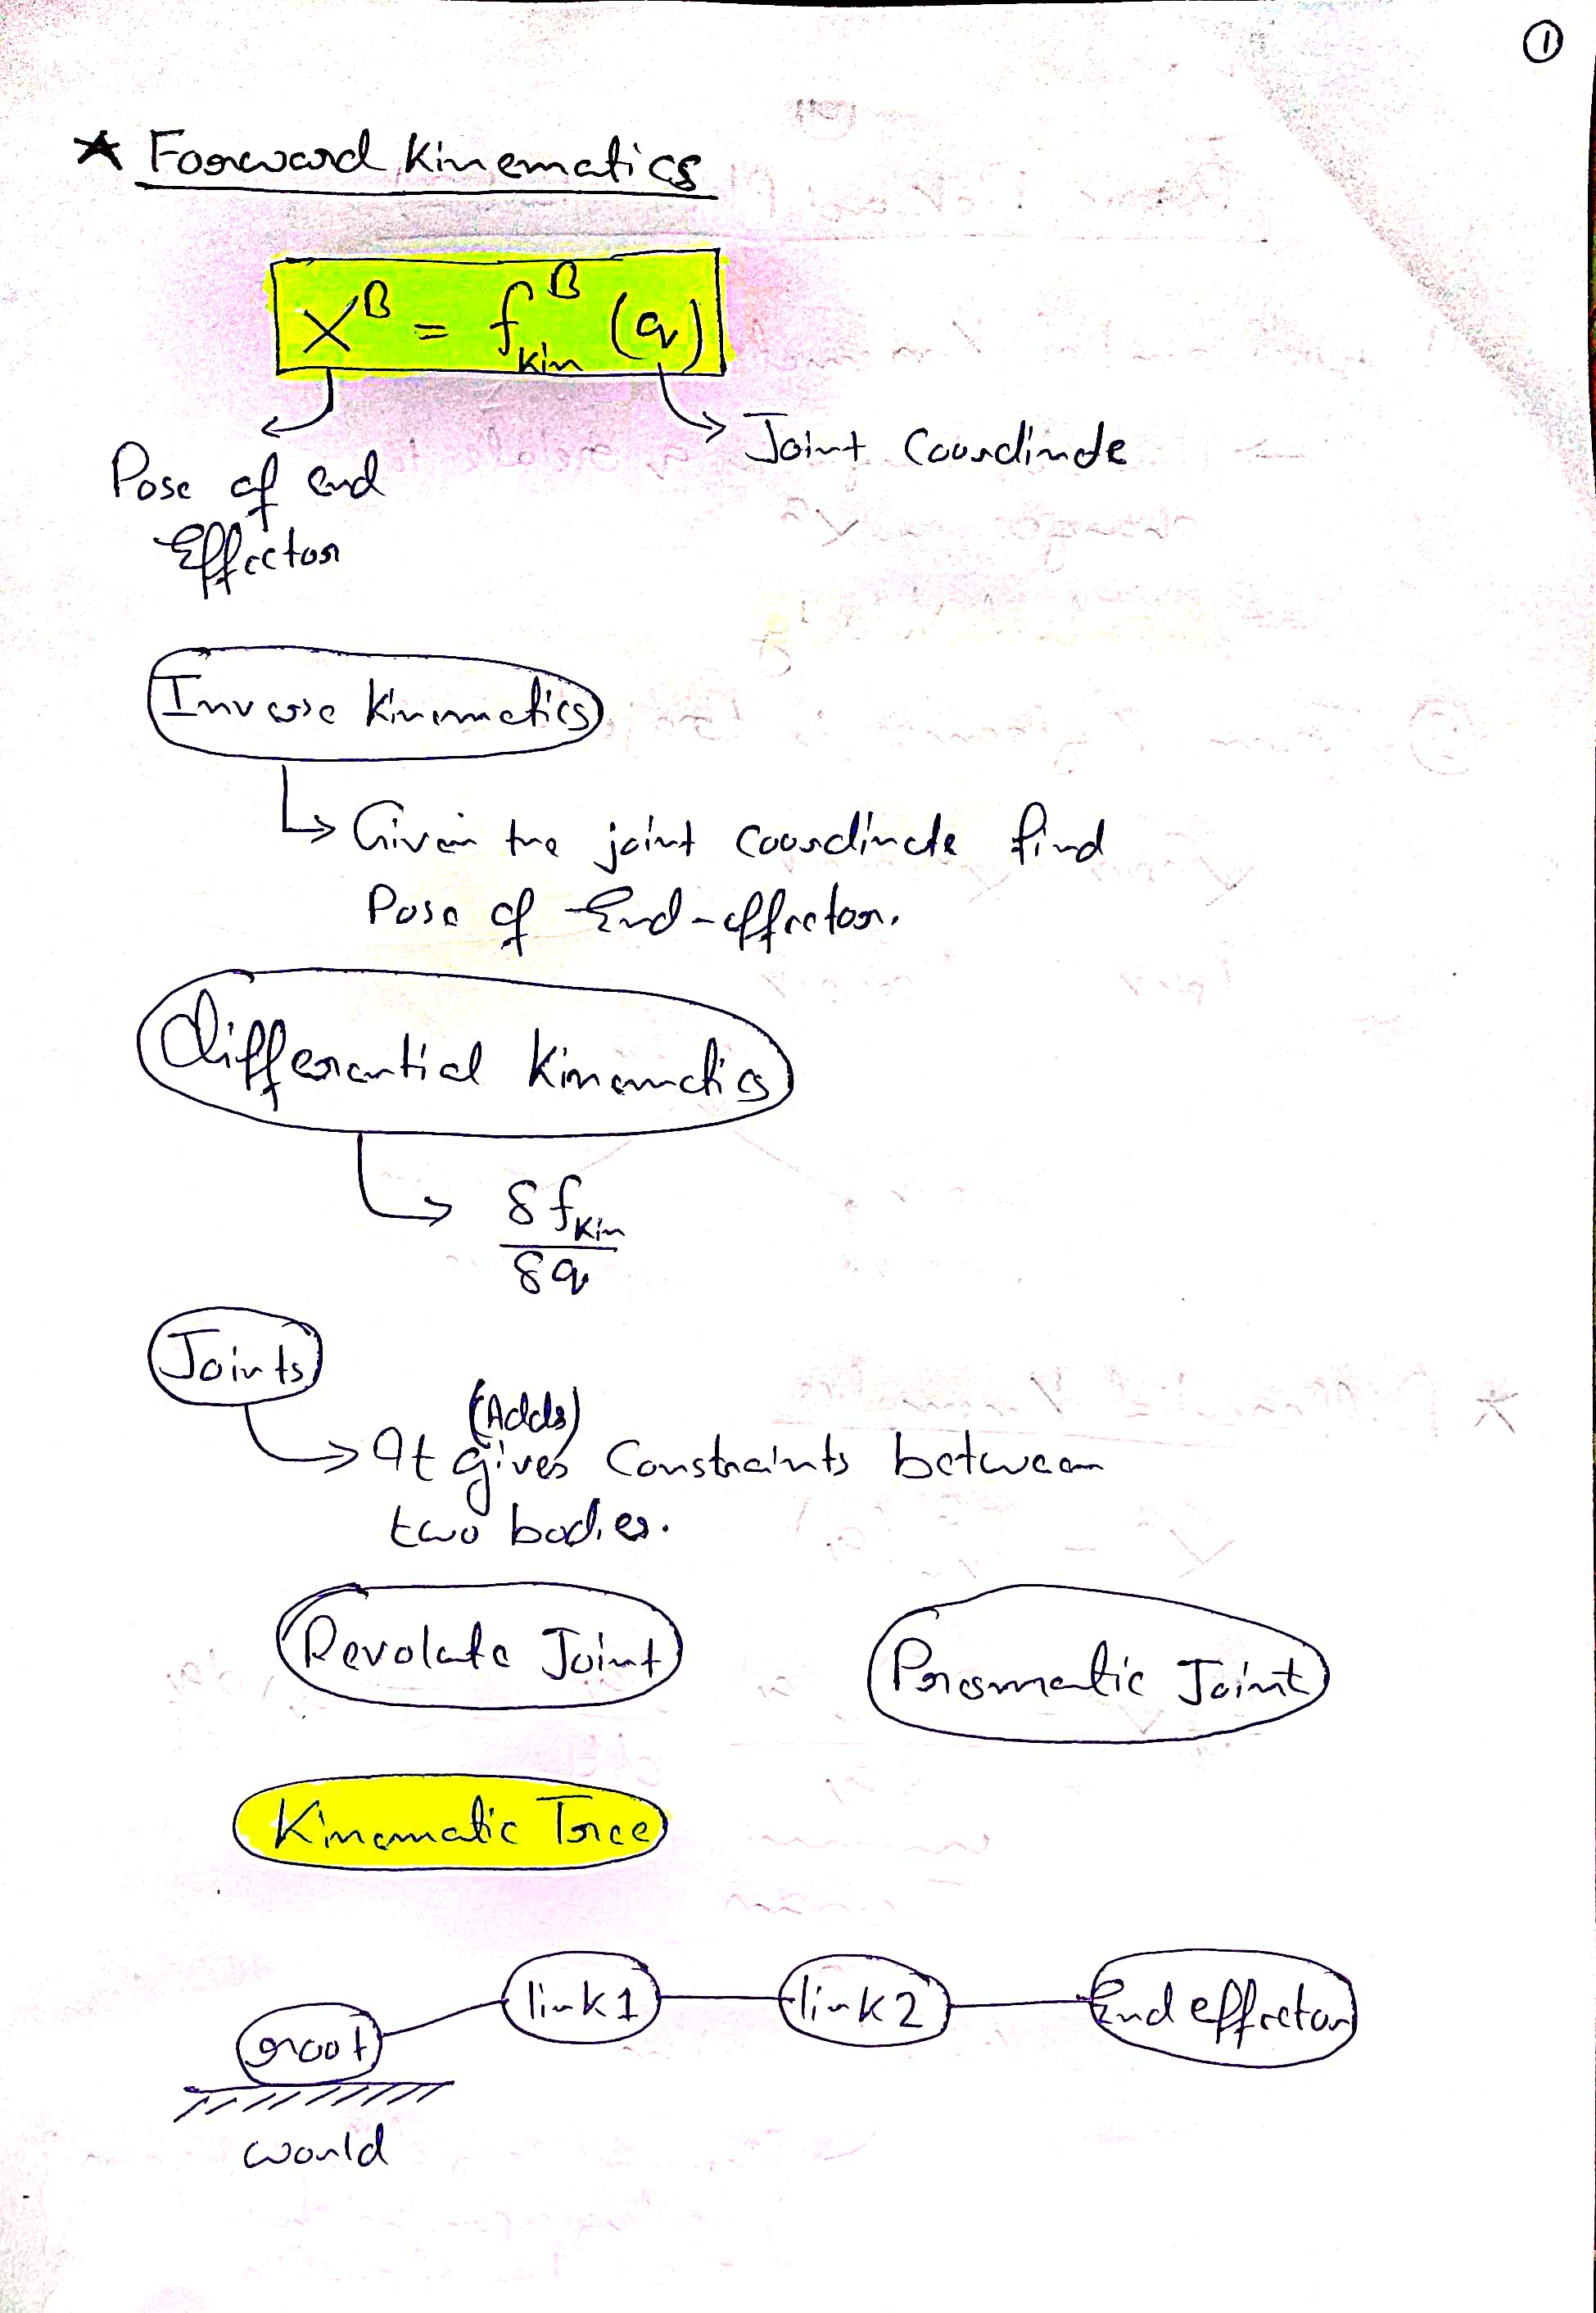 ①
★ Forward Kinematics
X^B = f_kin^B (q)
Joint Coordinate
Pose of end
Effector
Inverse Kinematics
Given the joint coordinate find
Pose of End-effector.
Differential Kinematics
δf_kin
δq
Joints
(Adds)
It gives Constraints between
two bodies.
Revolute Joint
Prismatic Joint
Kinematic Tree
link1
link2
End effector
root
world